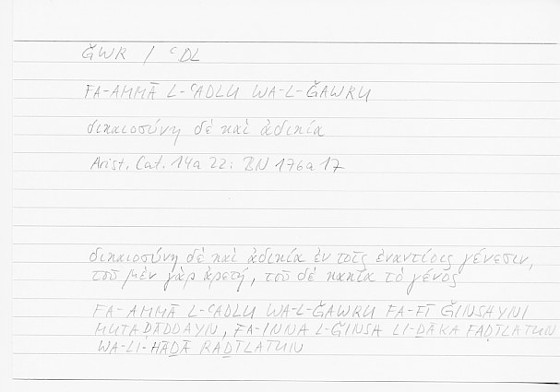 ǦWR / ʿDL
FA-AMMĀ L-ʿADLU WA-L-ǦAWRU
δικαιοσύνη δὲ καὶ ἀδικία
Arist. Cat. 14a 22: BN 176a 17
δικαιοσύνη δὲ καὶ ἀδικία ἐν τοῖς ἐναντίοις γένεσιν,
τοῦ μὲν γὰρ ἀρετή, τοῦ δὲ κακία τὸ γένος
FA-AMMĀ L-ʿADLU WA-L-ǦAWRU FA-FĪ ǦINSHAYNI
MUTAḌĀDDAYN, FA-INNA L-ǦINSA LI-ḎĀKA FAḌĪLATUN
WA-LI-HĀḎĀ RAḎĪLATUN